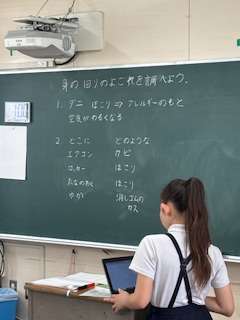 身の回りのよごれを調べよう。
1. ダニ ほこり ⇒ アレルギーのもと
空気がわるくなる
2. どこに どのような
エアコン カビ
ロッカー ほこり
たなのおく ほこり
ゆか 消しゴムの
カス